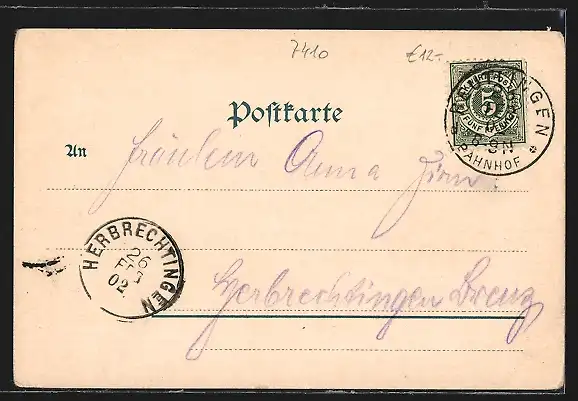 7410
€12.-
Postkarte
5
FÜNF PFENNIG
6-9N
BAHNHOF
An
Fräulein Anna
HERBRECHTINGEN
26
FEB
02
Herbrechtingen Brenz